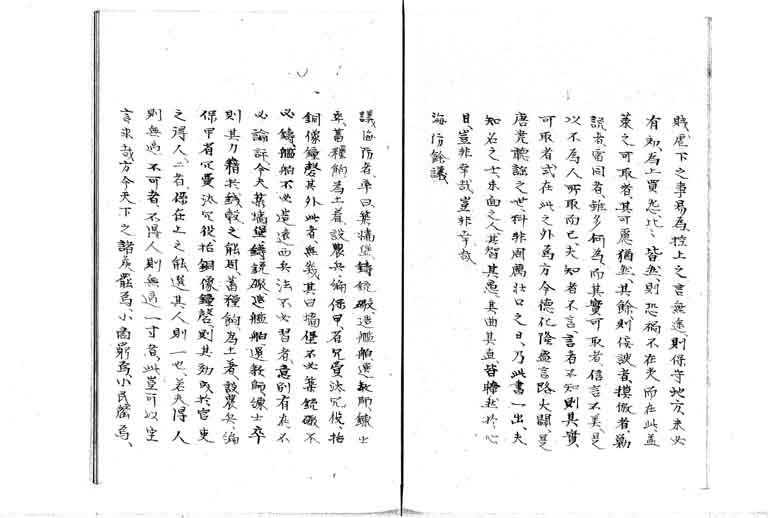 賤虐下之事易為、控上之言無速、則保守地方未必
有効、為上買怨、比〻皆然、則恐禍不在夷而在此、蓋
策之可取者、其可厲猶然、其餘則侫諛者、摸倣者、勦
説者、雷同者、雖多何為、而其實可取者、信言不美、是
以不為人所取而已、夫知者不言、言者不知、則其實
可取者、或在此之外為、方今德化隆盛、言路大闢、是
唐堯聽諡之世、科非周厲壮口之日、乃此書一出、夫
知名之士、未面之人、其智其愚、其曲其直、皆瞭然於心
目、豈非幸哉、豈非幸哉、
海防餘議
議海防者、率曰、築墻堡、鑄銃礮、造艦舶、選教師、練士
卒、蓄種餉、為土著、設農兵、編保甲、省冗費、汰冗役、掊
銅像鐘磬、其外此者、無幾、其曰、墻堡不必築、銃礮不
必鑄、艦舶不必造、遠西兵法不必習者、意別有在、不
必論評、今夫築墻堡、鑄銃礮、造艦舶、選教師、練士卒、
則其力籍於錢穀之能周、蓄種餉、為土著、設農兵、編
保甲、省冗費、汰冗役、掊銅像鐘磬、則其効成於官吏
之得人、二者、係任上之能選其人則一也、若夫得人
則無過不可者、不得人則無過一寸者、此豈可以空
言求哉、方今天下之諸侯罷為、小商窮為、小民離為、